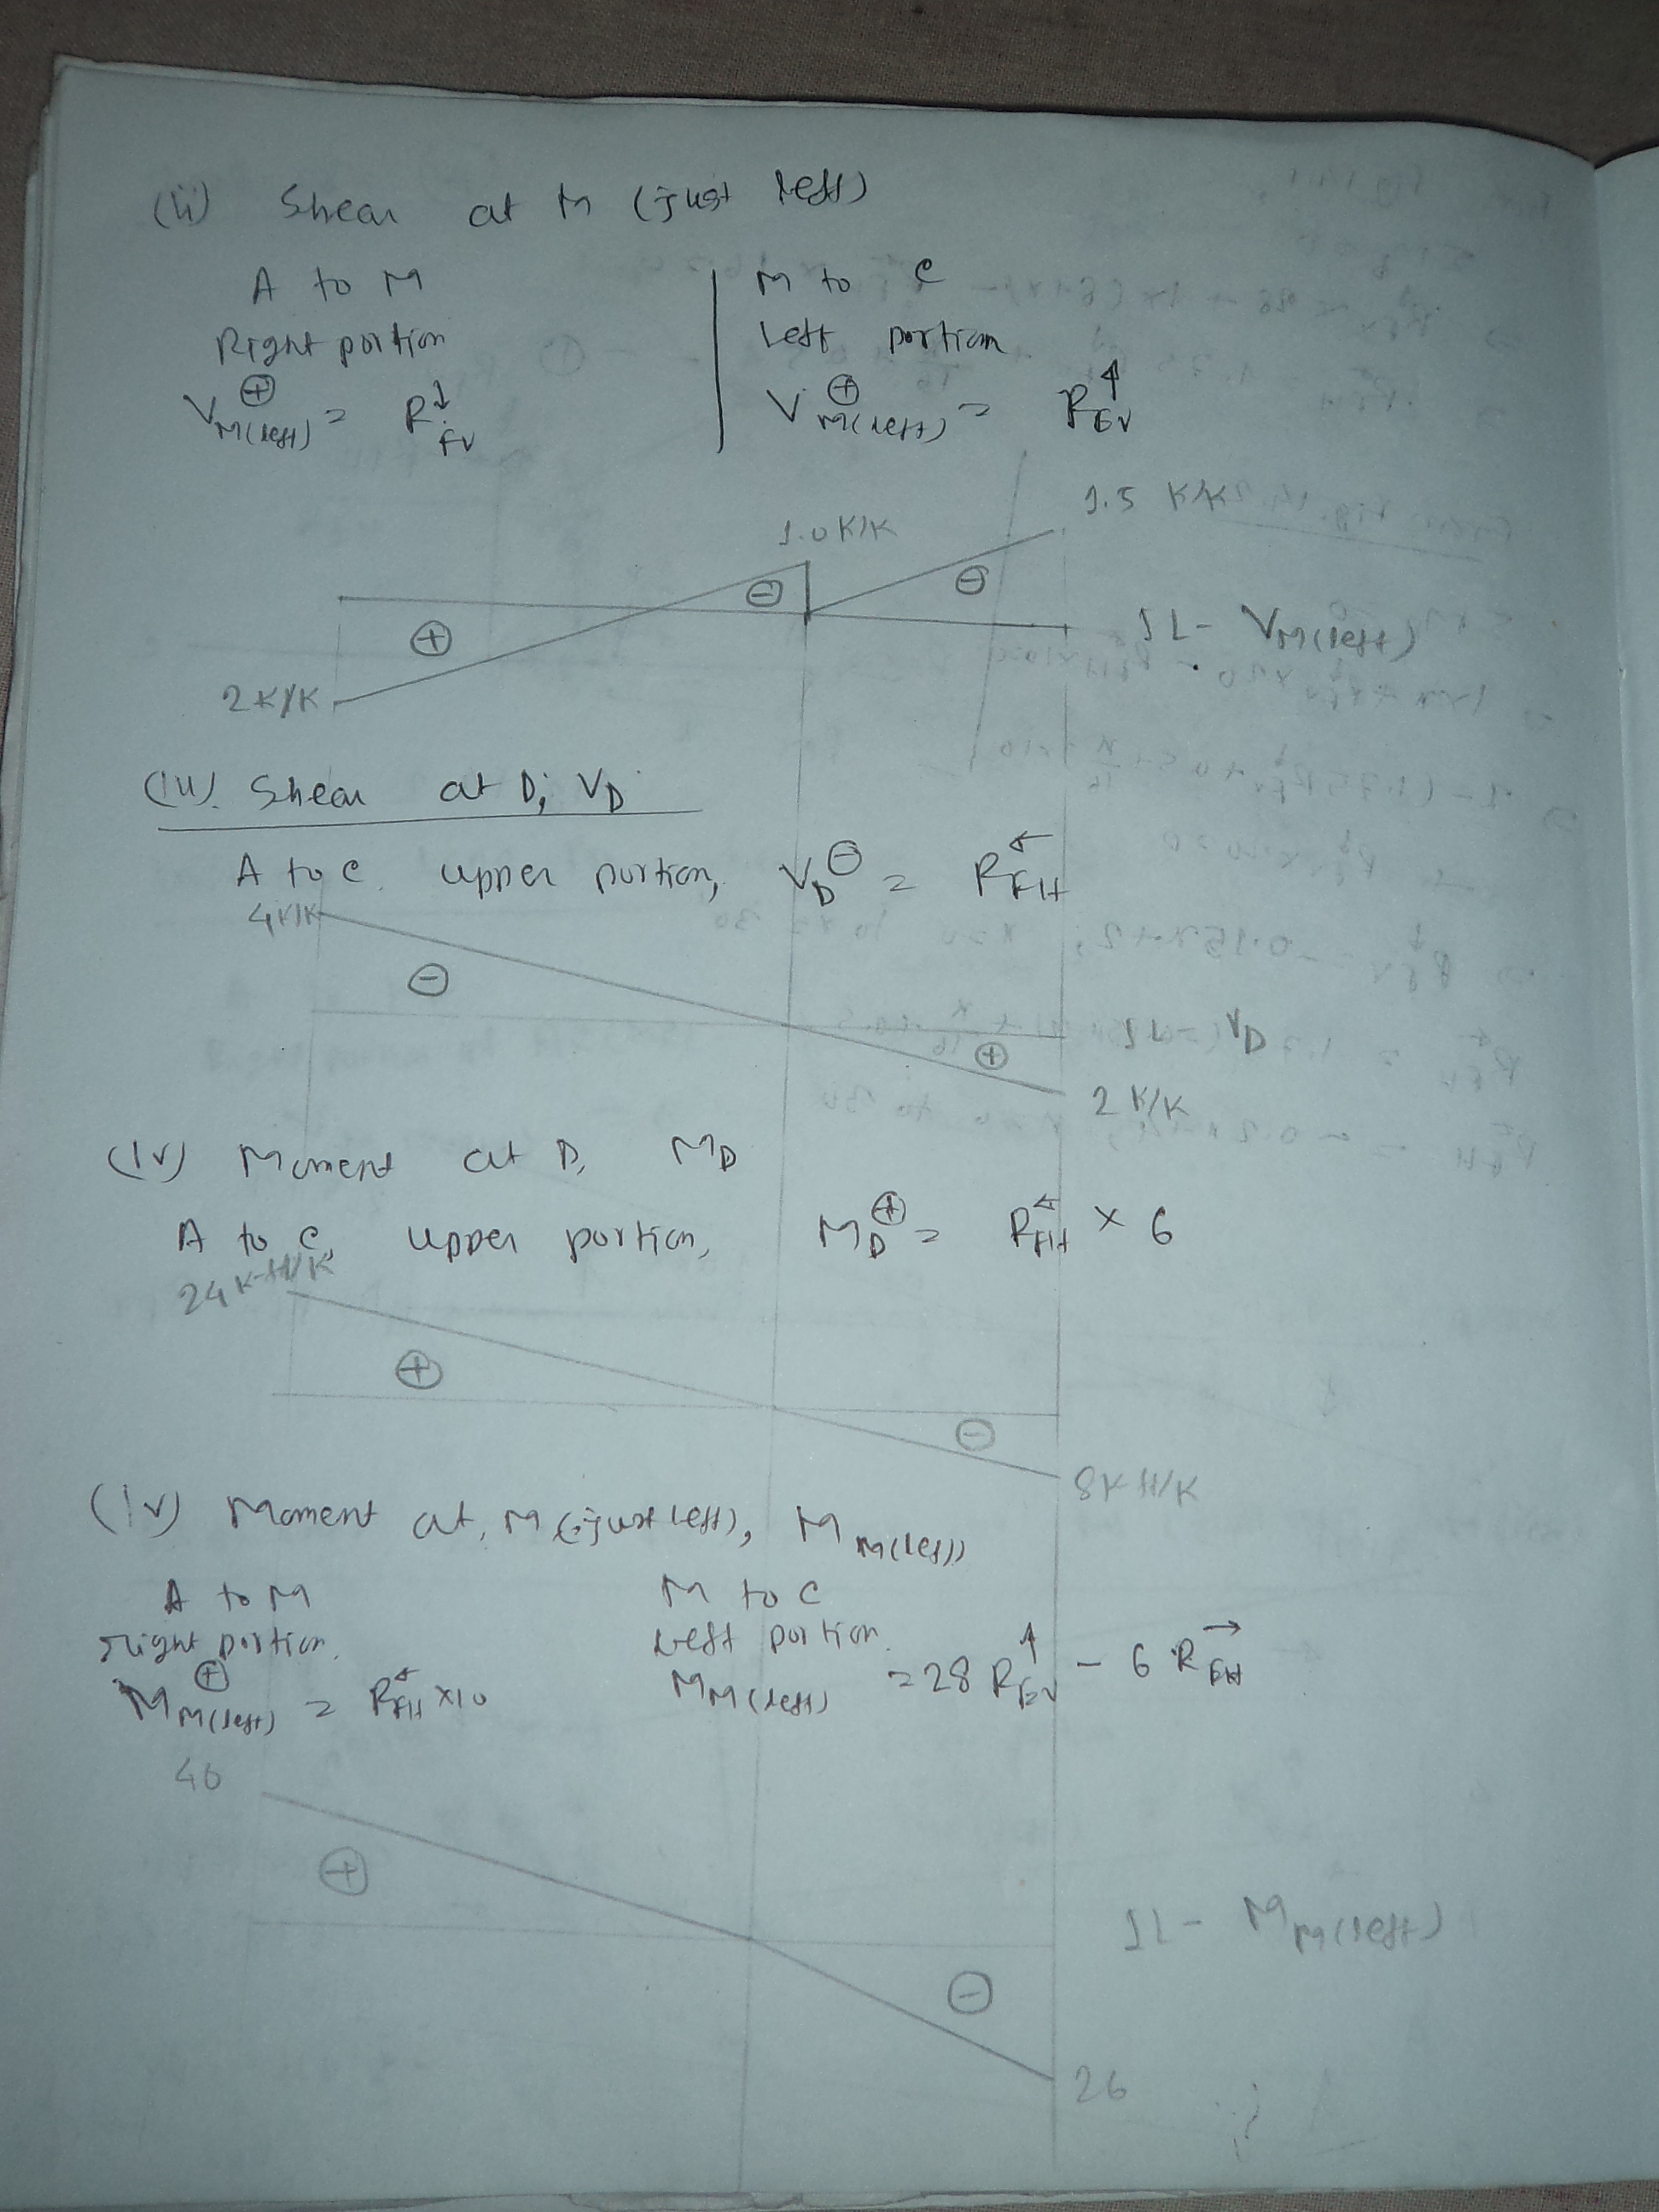 (ii) Shear at M (just left)
A to M
Right portion
V⊕M(left) = R↓FV
M to C
Left portion
V⊕M(left) = R↑EV
1.5 K/K
1.0 K/K
⊖
⊖
⊕
IL - VM(left)
2 K/K
(iii). Shear at D; VD
A to C. upper portion, VD⊖ = R←FH
4K/K
⊖
IL - VD
⊕
2 K/K
(iv) Moment at D, MD
A to C, upper portion, MD⊕ = R←FH × 6
24 K-ft/K
⊕
⊖
8K ft/K
(iv) Moment at, M (just left), MM(left)
A to M
right portion.
M⊕M(left) = R←FH ×10
M to C
Left portion.
MM(left) = 28 R↑EV - 6 R→EH
40
⊕
IL - MM(left)
⊖
26